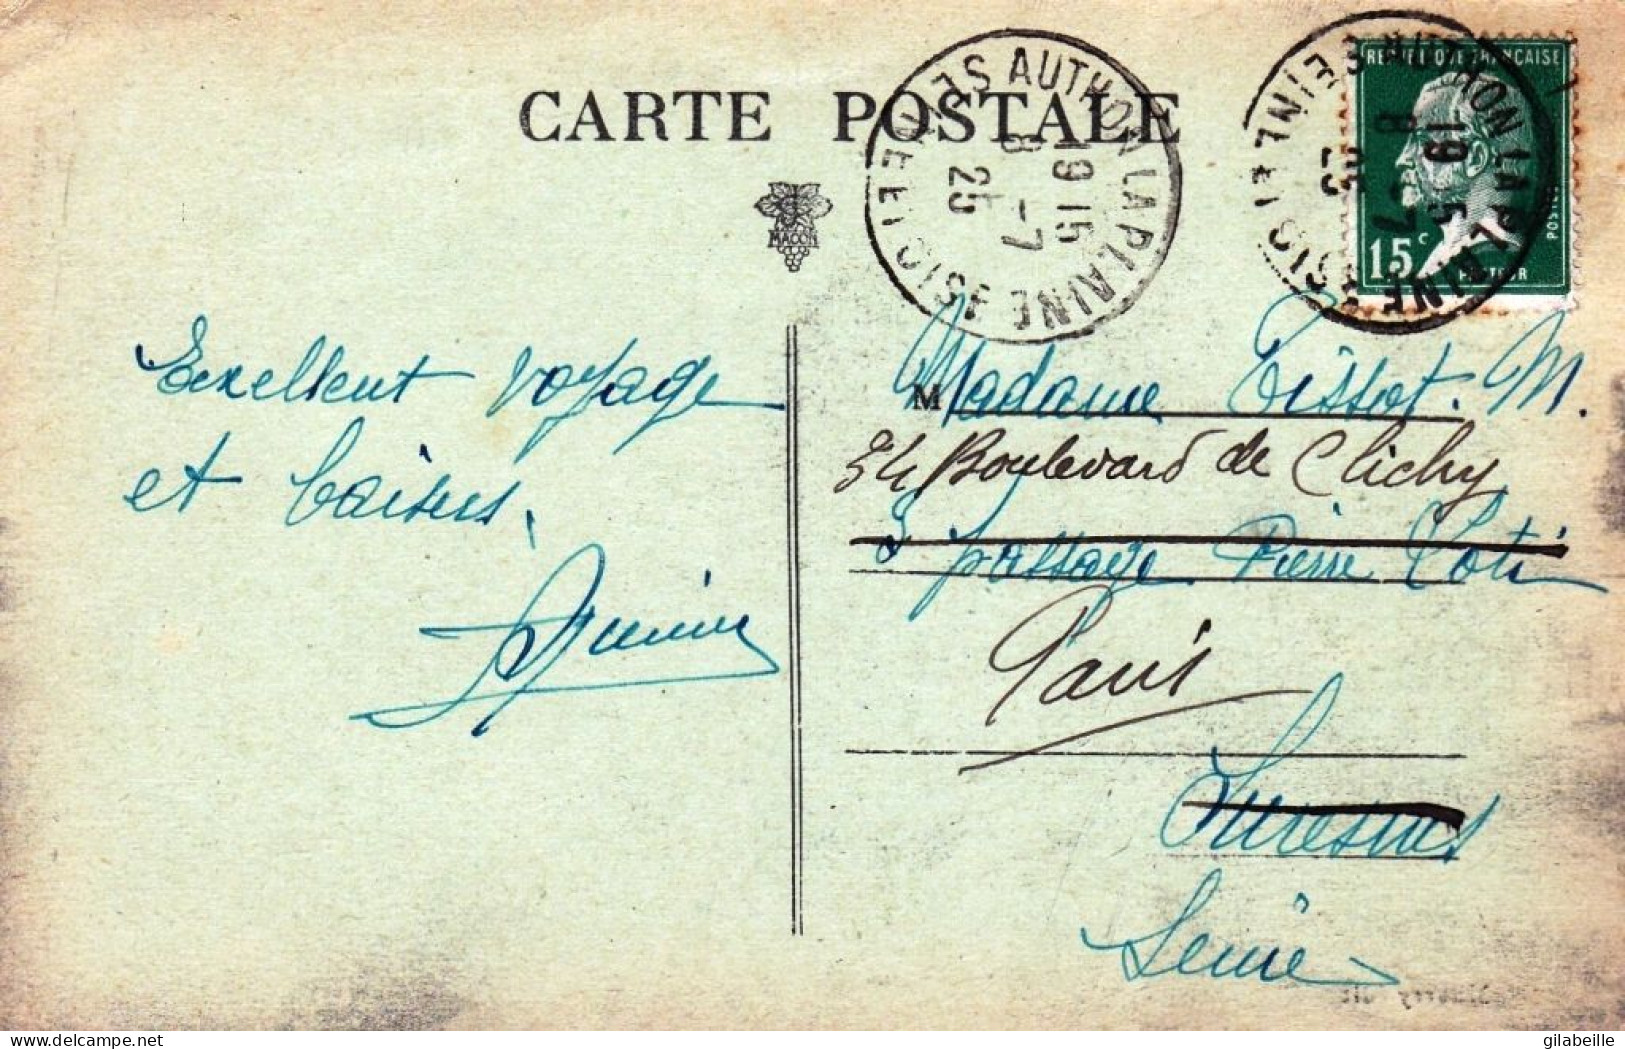 CARTE POSTALE
SEINE ET OISE AUTHON LA PLAINE
19 15
8 - 7
25
SEINE ET OISE AUTHON LA PLAINE
19 15
8 7
25
REPUBLIQUE FRANÇAISE
POSTES
15c
PASTEUR
MACON
Excellent voyage
et baisers.
M Madame Tissot. M.
34 Boulevard de Clichy
3 passage Pierre Loti
Paris
Suresnes
Seine
gilabeille